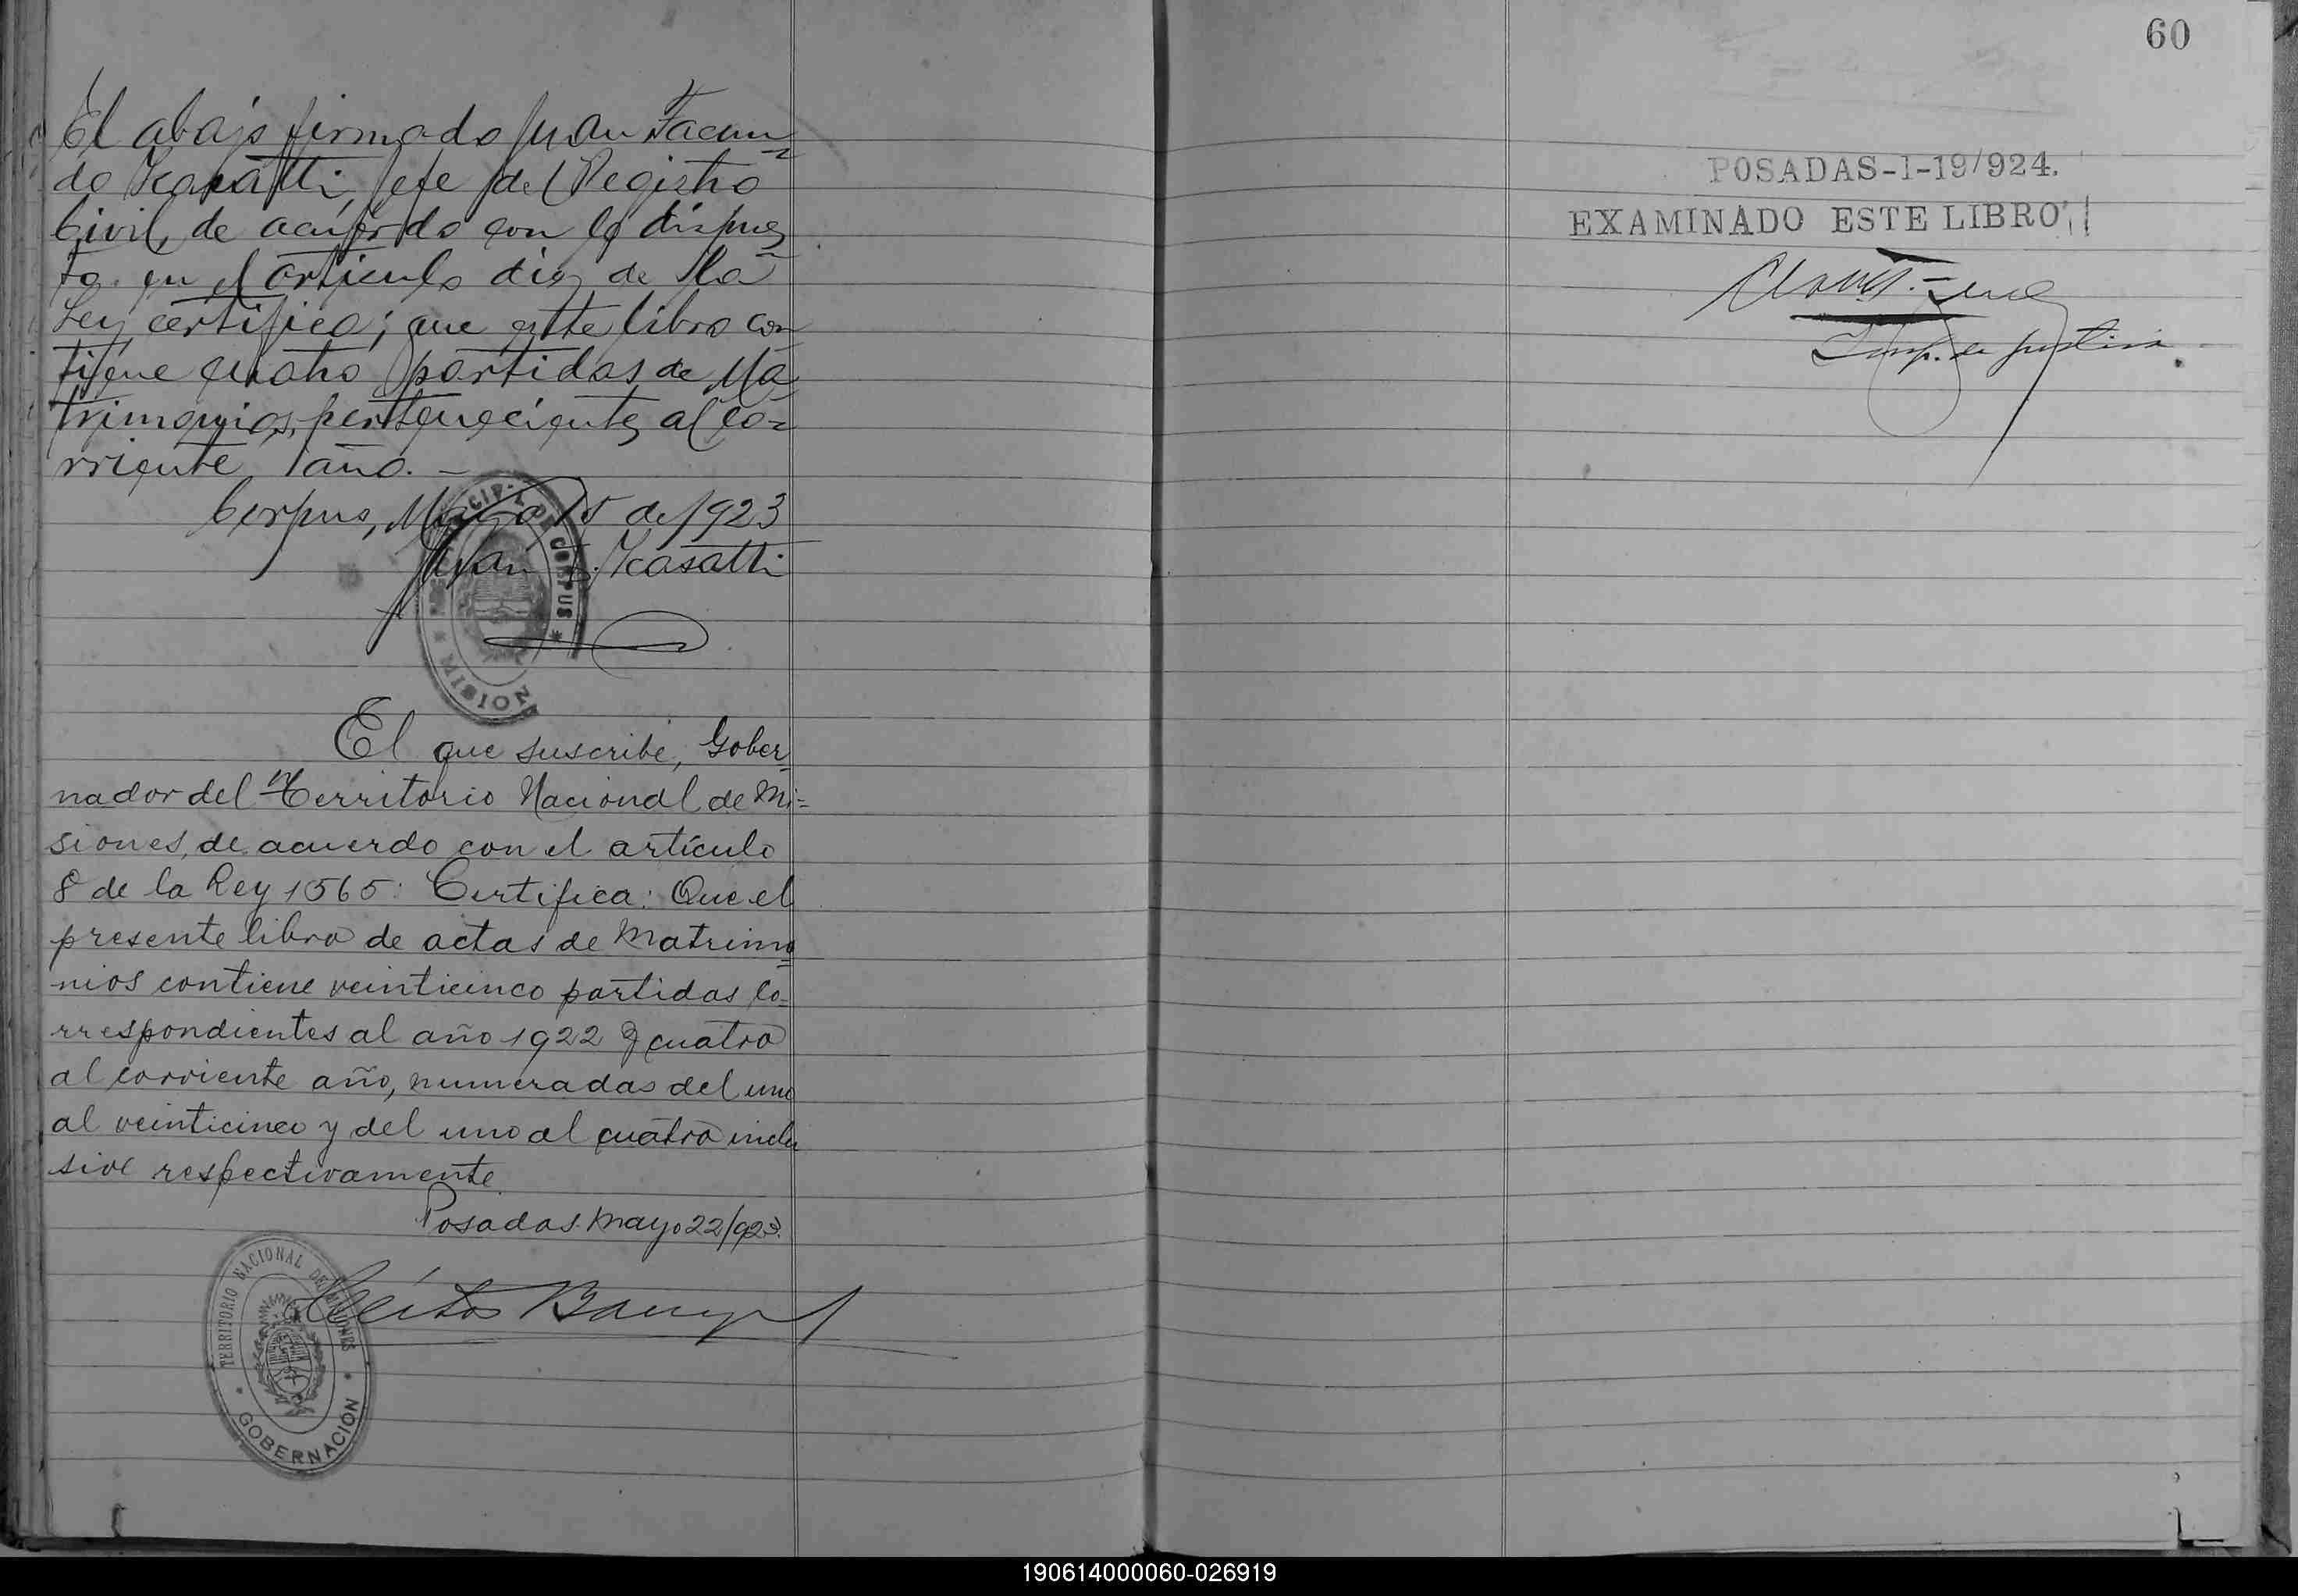 El abajo firmado Juan Facun=
do Kasatti, Jefe del Registro
Civil, de acuerdo con lo dispues=
to en el articulo diez de la
Ley, certifica; que este libro con
tiene cuatro partidas de Ma
trimonios, pertenecientes al co=
rriente año. —
Corpus, Mayo 15 de 1923
Juan F. Kasatti
DE CORPUS * MISION
El que suscribe, Gober=
nador del Territorio Nacional de Mi=
siones, de acuerdo con el artículo
8 de la Ley 1565: Certifica: Que el
presente libro de actas de Matrimo=
nios contiene veinticinco partidas co=
rrespondientes al año 1922 y cuatro
al corriente año, numeradas del uno
al veinticinco y del uno al cuatro inclu
sive respectivamente
Posadas Mayo 22/923.
TERRITORIO NACIONAL DE MISIONES
* GOBERNACION *
60
POSADAS-1-19/924.
EXAMINADO ESTE LIBRO
Insp. de justicia
190614000060-026919